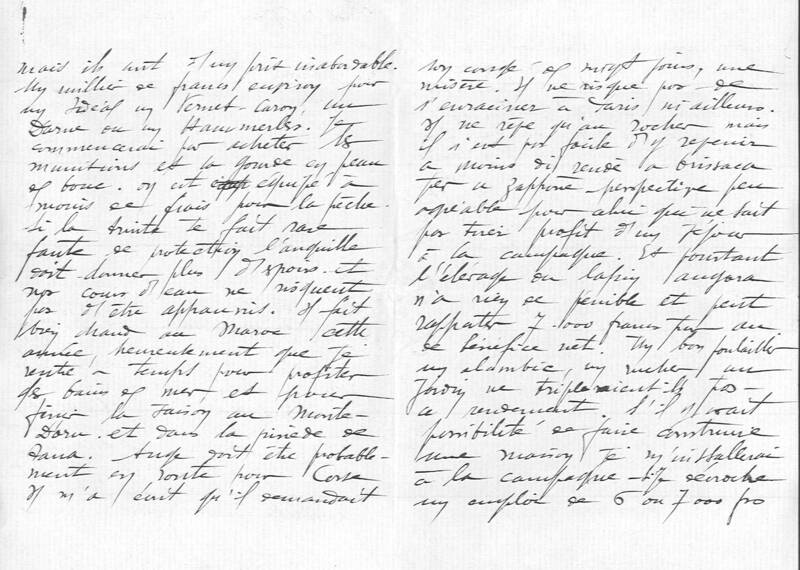 mais ils ont d'un prix inabordable.
Un millier de francs environ pour
un Idéal un Vernet-Caron, un
Darne ou un Hammerles. Je
commencerai par acheter les
munitions et la gourde en peau
de bouc. on est équipé à
moins de frais pour la pêche.
si la truite se fait rare
faute de protection l'anguille
doit donner plus d'espoir et
nos cours d'eau ne risquent
pas d'être appauvris. Il fait
bien chaud au Maroc cette
année, heureusement que je
rentre à temps pour profiter
des bains de mer, et pour
finir la saison au Monte-
Doru. et dans la pinède de
Ange doit être probable-
ment en route pour Corse
Il m'a écrit qu'il demandait
son congé de vingt jours, une
misère. Il ne risque pas de
s'enraciner à Paris ni ailleurs.
Il ne rêve qu'au Rocher mais
il n'est pas facile d'y revenir
à moins di rende a
per a zappone, perspective peu
agréable pour celui qui ne sait
pas tirer profit d'un séjour
à la campagne. Et pourtant
l'élevage du lapin angora
n'a rien de pénible et peut
rapporter 7.000 francs par an
de bénéfice net. Un bon poulailler
un alambic, un rucher un
jardin ne tripleraient-ils pas
ce rendement. S'il y avait
possibilité de faire construire
une maison je m'installerai
à la campagne décroche
un emploi de 6 ou 7000 frs